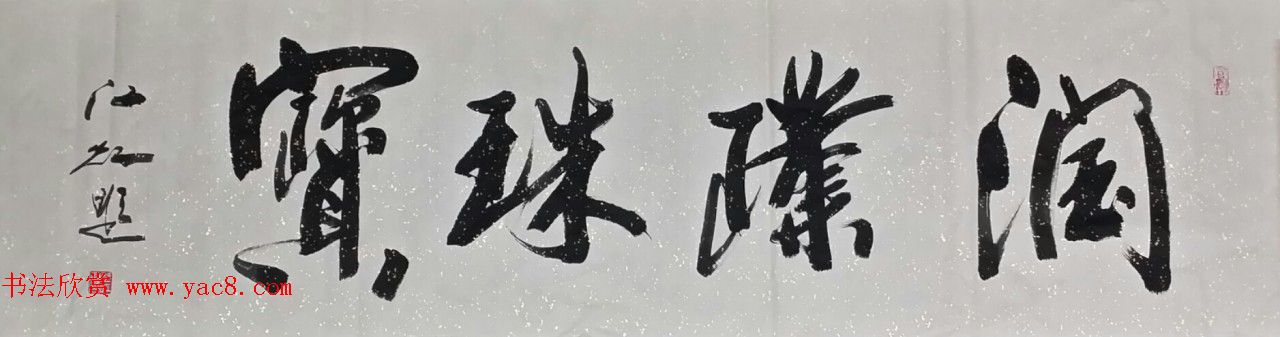 潤璞珠寶
仕旭題
书法欣赏 www.yac8.com